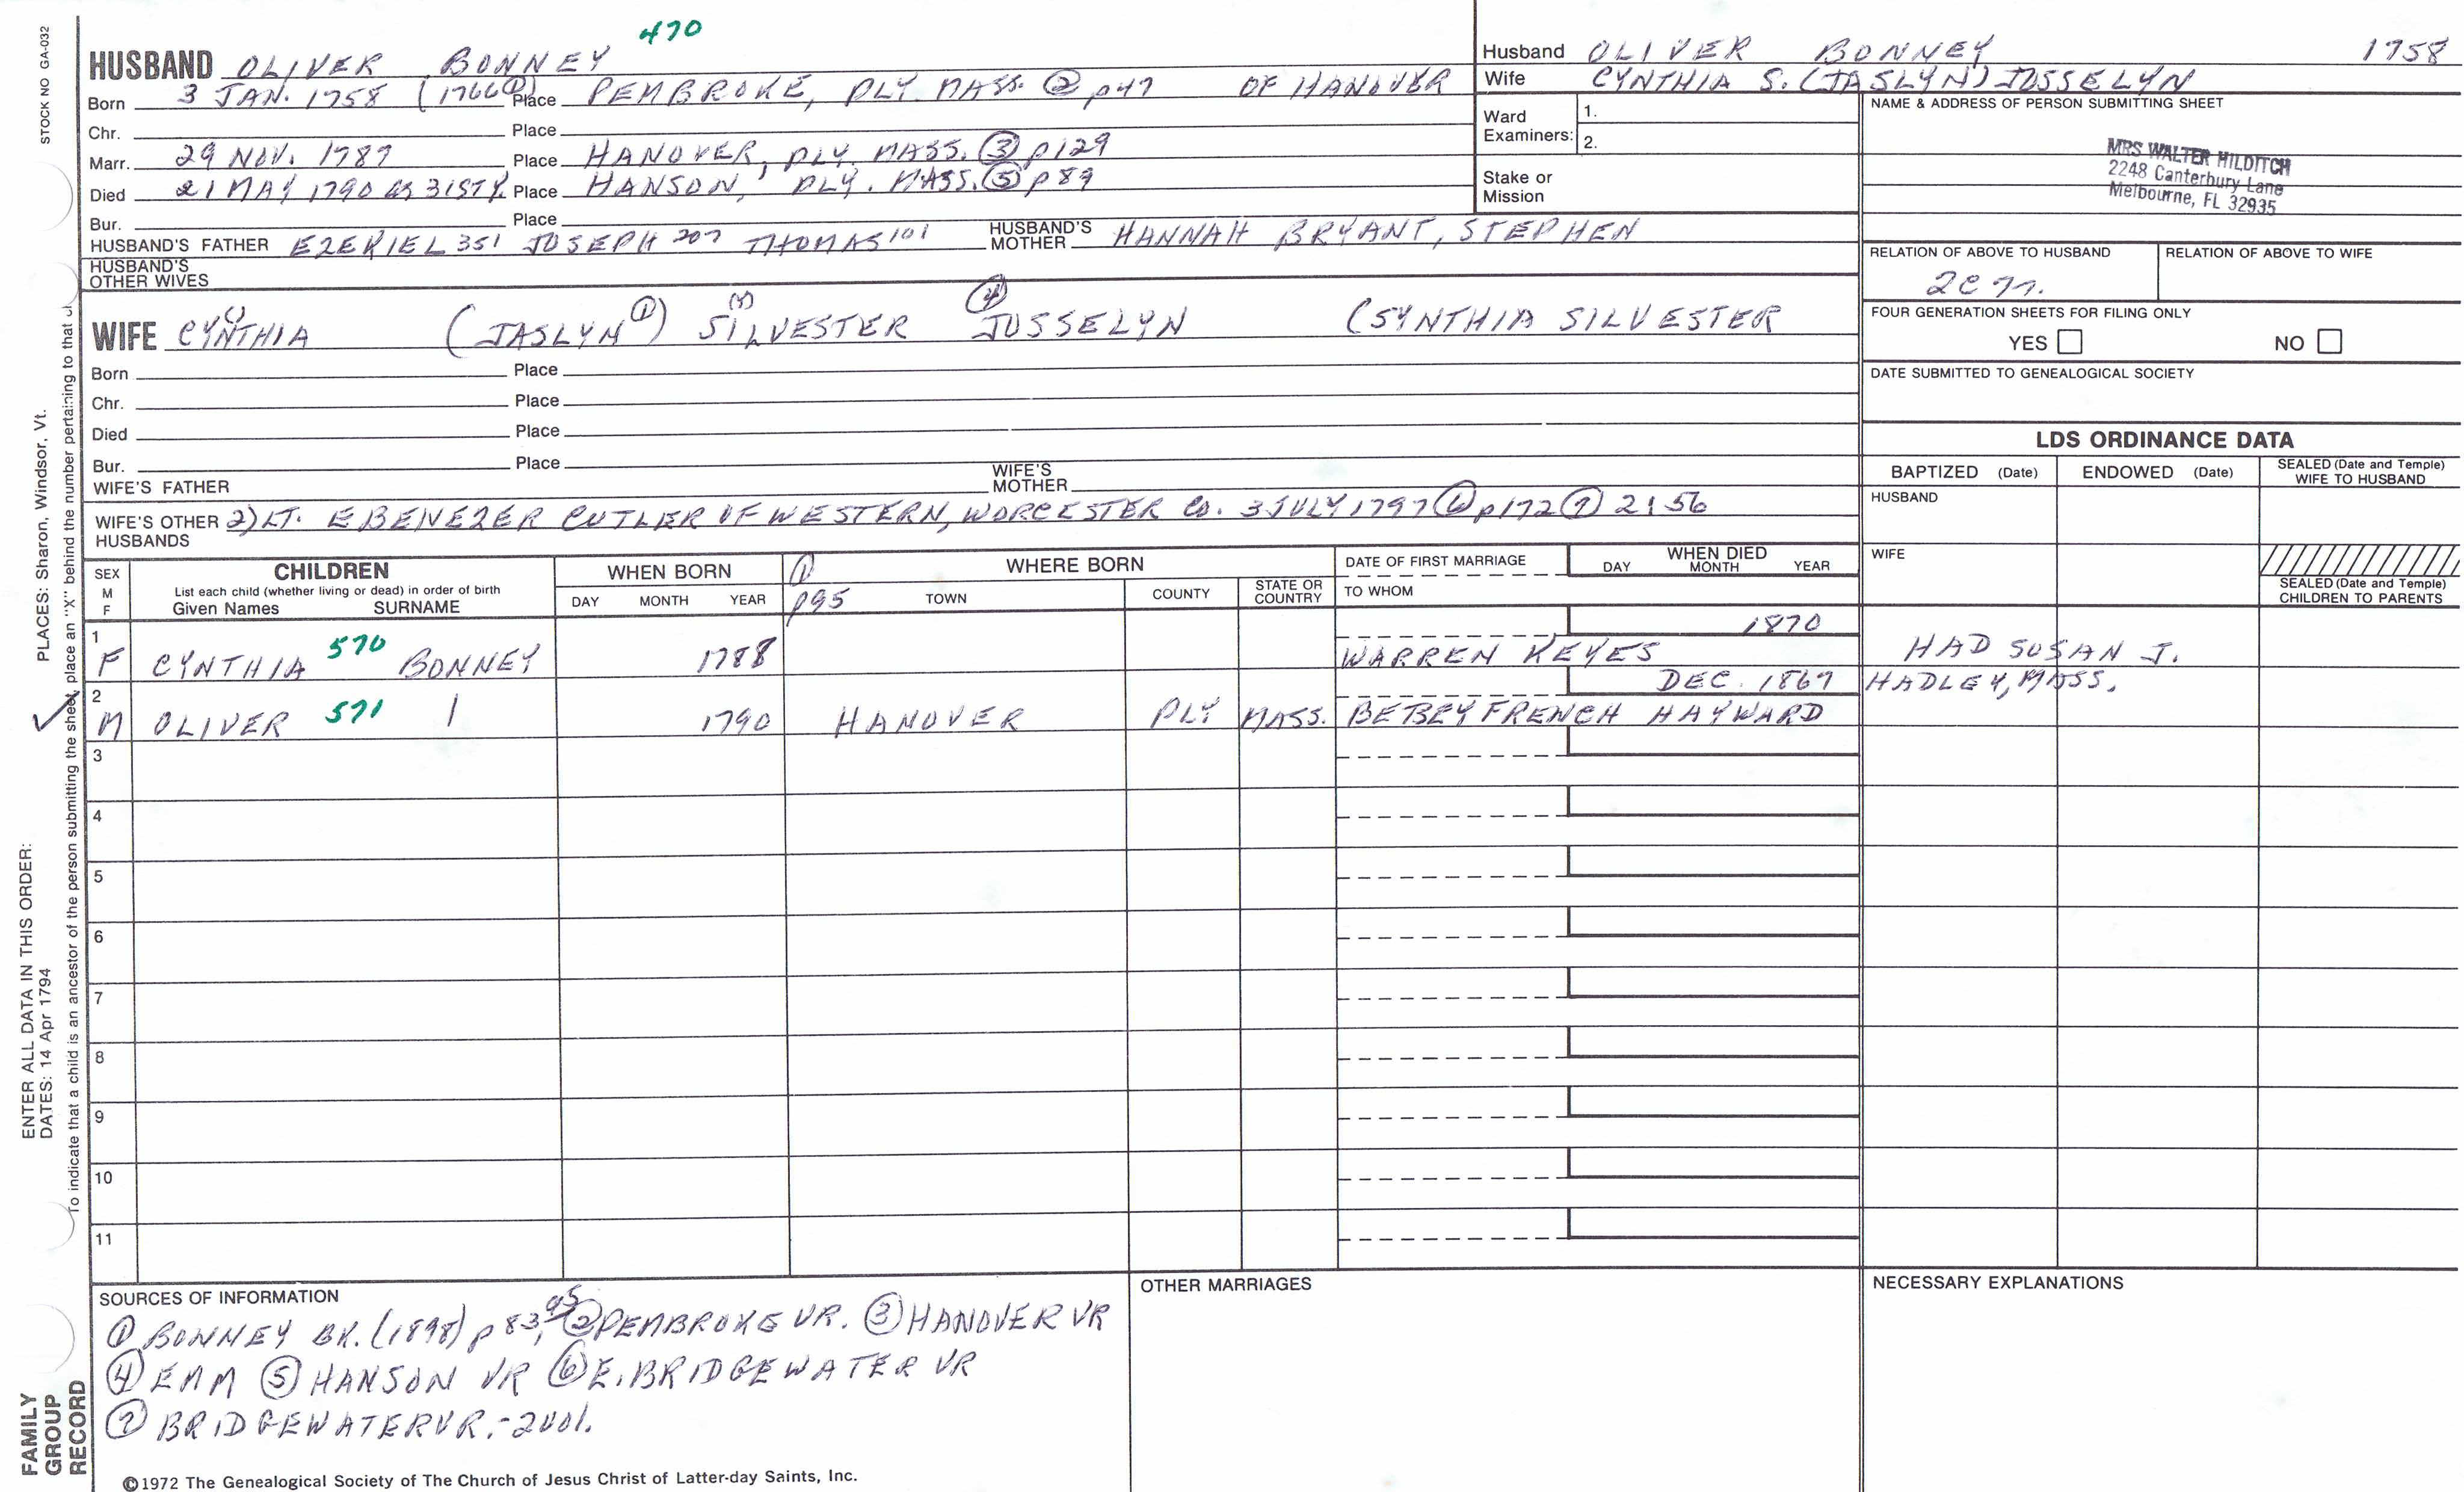 470
HUSBAND OLIVER BONNEY
Born 3 JAN. 1758 (1766①) Place PEMBROKE, PLY. MASS. ② p47 OF HANOVER
Chr. Place
Marr. 29 NOV. 1787 Place HANOVER, PLY. MASS. ③ p129
Died 21 MAY 1790 as 31st y. Place HANSON, PLY. MASS. ⑤ p89
Bur. Place
HUSBAND'S FATHER EZEKIEL 351 JOSEPH 207 THOMAS 101 HUSBAND'S MOTHER HANNAH BRYANT, STEPHEN
HUSBAND'S OTHER WIVES
WIFE CYNTHIA (JASLYN①) SILVESTER ④ JOSSELYN (SYNTHIA SILVESTER
Born Place
Chr. Place
Died Place
Bur. Place
WIFE'S FATHER WIFE'S MOTHER
WIFE'S OTHER HUSBANDS 2) LT. EBENEZER CUTLER OF WESTERN, WORCESTER CO. 3 JULY 1797 ⑥ p172 ⑦ 2:56
Husband OLIVER BONNEY 1758
Wife CYNTHIA S. (JASLYN) JOSSELYN
Ward Examiners: 1.
2.
Stake or Mission
NAME & ADDRESS OF PERSON SUBMITTING SHEET
MRS WALTER HILDITCH
2248 Canterbury Lane
Melbourne, FL 32935
RELATION OF ABOVE TO HUSBAND RELATION OF ABOVE TO WIFE
FOUR GENERATION SHEETS FOR FILING ONLY
YES NO
DATE SUBMITTED TO GENEALOGICAL SOCIETY
LDS ORDINANCE DATA
BAPTIZED (Date) ENDOWED (Date) SEALED (Date and Temple) WIFE TO HUSBAND
HUSBAND
WIFE
SEALED (Date and Temple) CHILDREN TO PARENTS
SEX M F
CHILDREN
List each child (whether living or dead) in order of birth
Given Names SURNAME
WHEN BORN
DAY MONTH YEAR
① p95
WHERE BORN
TOWN COUNTY STATE OR COUNTRY
DATE OF FIRST MARRIAGE
TO WHOM
WHEN DIED
DAY MONTH YEAR
1 1870
F CYNTHIA 570 BONNEY 1788 WARREN KEYES HAD SUSAN J.
2 DEC. 1867 HADLEY, MASS.
M OLIVER 571 1790 HANOVER PLY MASS. BETSEY FRENCH HAYWARD
3
4
5
6
7
8
9
10
11
SOURCES OF INFORMATION
① BONNEY BK. (1898) p 83, 95 ② PEMBROKE VR. ③ HANOVER VR
④ EMM ⑤ HANSON VR ⑥ E. BRIDGEWATER VR
⑦ BRIDGEWATER VR.-2vol.
OTHER MARRIAGES
NECESSARY EXPLANATIONS
©1972 The Genealogical Society of The Church of Jesus Christ of Latter-day Saints, Inc.
STOCK NO GA-032
PLACES: Sharon, Windsor, Vt.
To indicate that a child is an ancestor of the person submitting the sheet, place an "X" behind the number pertaining to that
ENTER ALL DATA IN THIS ORDER:
DATES: 14 Apr 1794
FAMILY
GROUP
RECORD